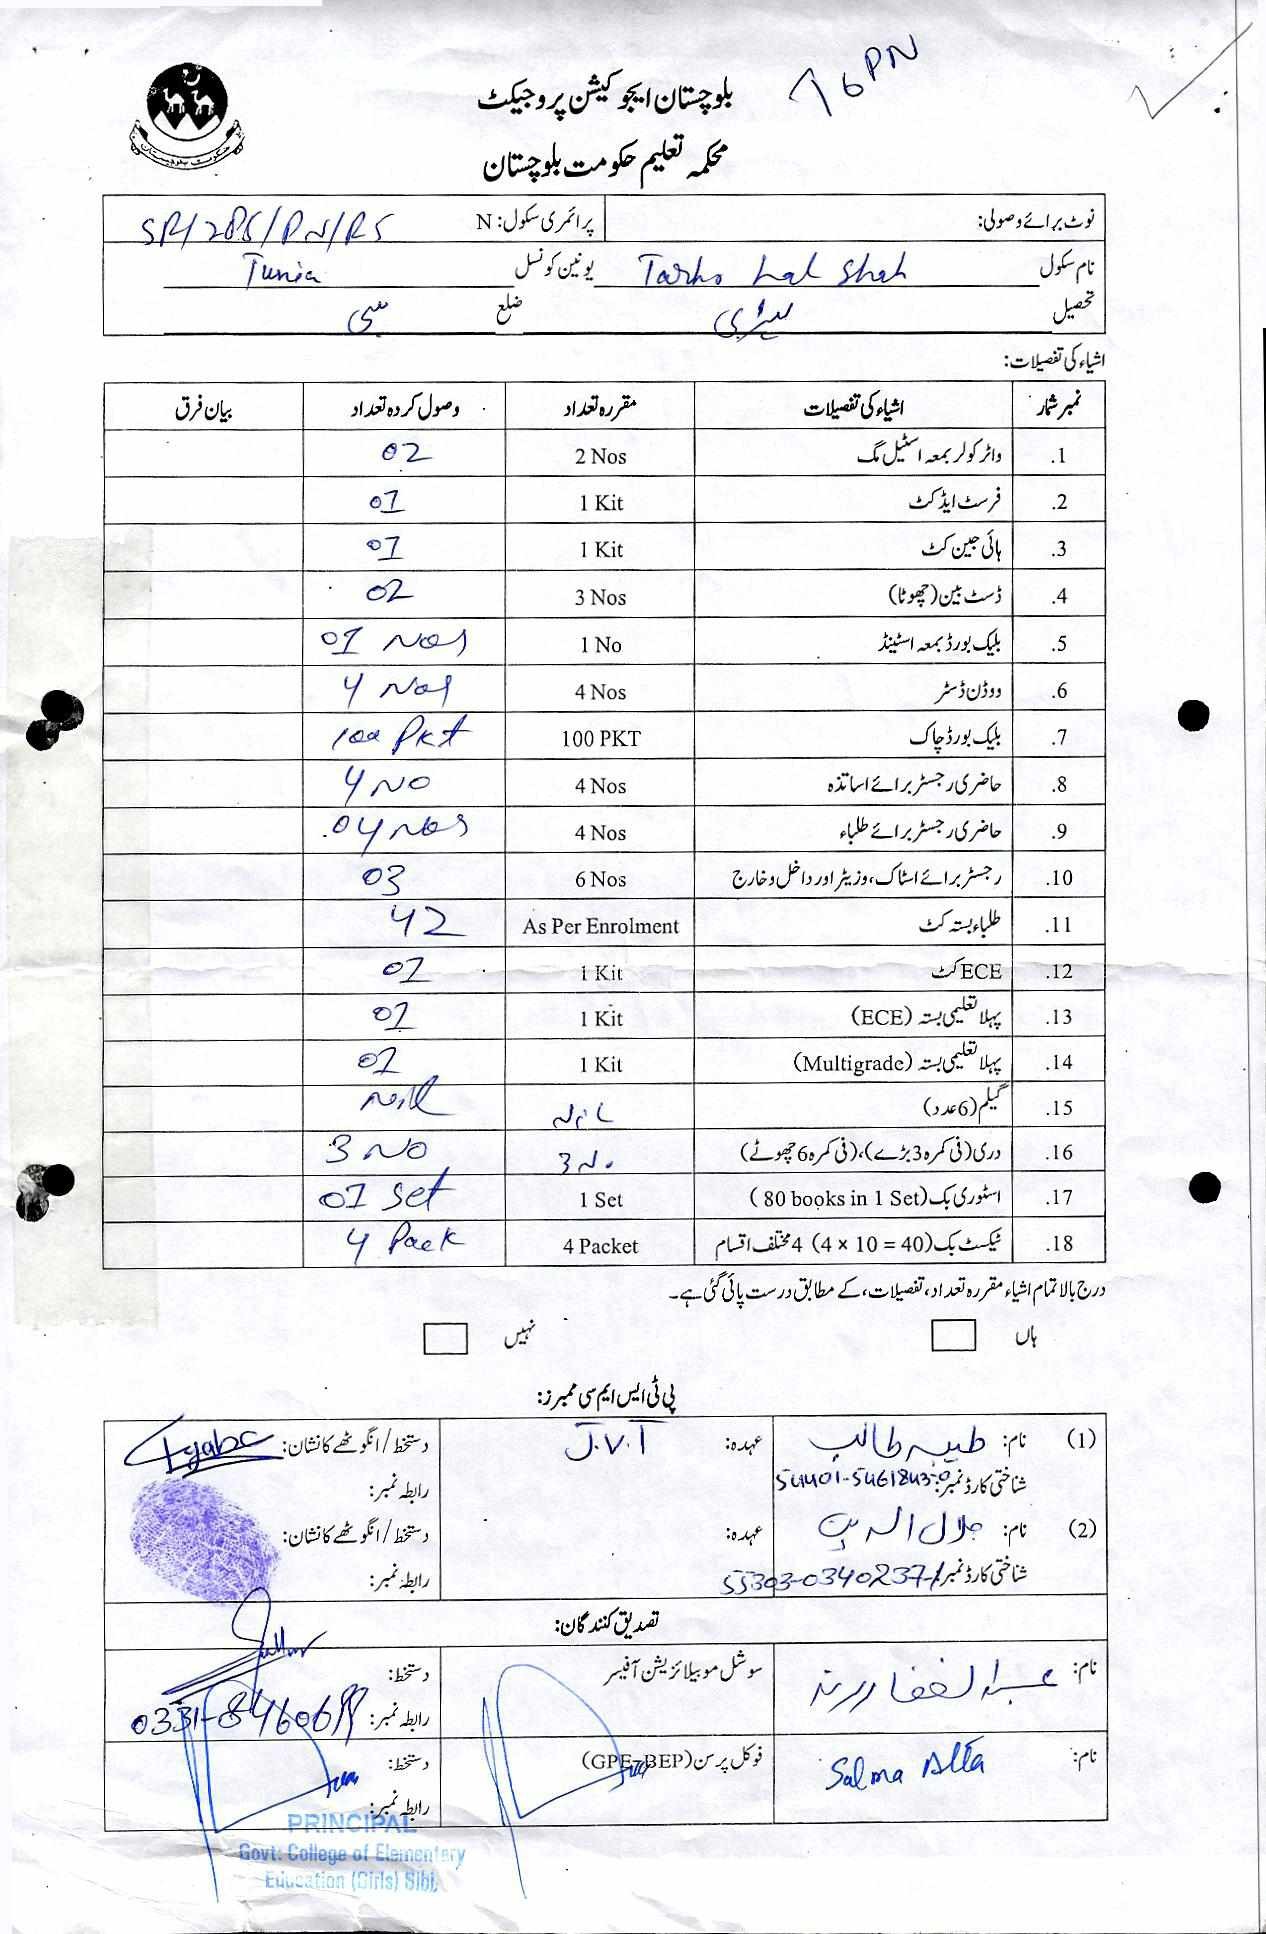 بلوچستان ایجوکیشن پروجیکٹ
محکمہ تعلیم حکومت بلوچستان
نوٹ برائے وصولی: پرائمری سکول: N
نام سکول Tarho Lal Shah یونین کونسل Tunia
تحصیل ضلع سبی
اشیاء کی تفصیلات:
نمبر شمار اشیاء کی تفصیلات مقررہ تعداد وصول کردہ تعداد بیان فرق
1. واٹر کولر بمعہ اسٹیل مگ 2 Nos 02
2. فرسٹ ایڈ کٹ 1 Kit 01
3. ہائی جین کٹ 1 Kit 01
4. ڈسٹ بین (چھوٹا) 3 Nos 02
5. بلیک بورڈ بمعہ اسٹینڈ 1 No 01 Nos
6. ووڈن ڈسٹر 4 Nos 4 Nos
7. بلیک بورڈ چاک 100 PKT 100 Pkt
8. حاضری رجسٹر برائے اساتذہ 4 Nos 4 No
9. حاضری رجسٹر برائے طلباء 4 Nos 04 Nos
10. رجسٹر برائے اسٹاک، وزیٹر اور داخل و خارج 6 Nos 03
11. طلباء بستہ کٹ As Per Enrolment 42
12. ECE کٹ 1 Kit 01
13. پہلا تعلیمی بستہ (ECE) 1 Kit 01
14. پہلا تعلیمی بستہ (Multigrade) 1 Kit 01
15. گیلم (6 عدد) Nil Neill
16. دری (فی کمرہ 3 بڑے)، (فی کمرہ 6 چھوٹے) 3 No 3 No
17. اسٹوری بک (80 books in 1 Set) 1 Set 01 Set
18. ٹیکسٹ بک (4 × 10 = 40) 4 مختلف اقسام 4 Packet 4 Pack
درج بالا تمام اشیاء مقررہ تعداد، تفصیلات، کے مطابق درست پائی گئی ہے۔
ہاں نہیں
پی ٹی ایس ایم سی ممبرز:
(1) نام: طیبہ طالب عہدہ: J.V.T دستخط / انگوٹھے کا نشان: Tyaba
شناختی کارڈ نمبر: 54401-5461843-0 رابطہ نمبر:
(2) نام: جلال الدین عہدہ: دستخط / انگوٹھے کا نشان:
شناختی کارڈ نمبر: 55303-0340237-1 رابطہ نمبر:
تصدیق کنندگان:
نام: عبدالغفار رند سوشل موبیلائزیشن آفیسر دستخط:
رابطہ نمبر:
نام: Salma Atta فوکل پرسن (GPE-BEP) دستخط:
رابطہ نمبر:
PRINCIPAL
Govt: College of Elementary
Education (Girls) Sibi,